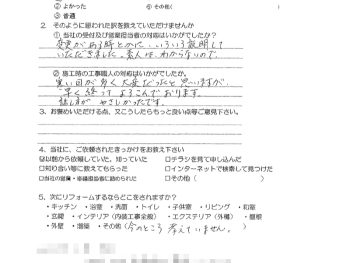 ② よかった　⑤ その他(
③ 普通
2. そのように思われた訳を教えていただけませんか
① 当社の受付及び営業担当者の対応はいかがでしたか?
変更がある時とかに、いろいろ説明して
いただきました。素人は、わからないので。
② 施工時の工事職人の対応はいかがでしたか。
寒い日が多く大変だったと思いますが、
早く終って よろこんでおります。
話し方が やさしかったです。
3. お褒めいただける点、又こうしたらもっと良い点等ご意見下さい。
4. 当社に、ご依頼されたきっかけをお教え下さい
☑以前から依頼していた、知っていた　□チラシを見て申し込んだ
□知り合い等に教えてもらった　□インターネットで検索して見つけた
□当社の営業・専属担当者に勧められた　□その他(　)
5. 次にリフォームするならどこをされますか?
・キッチン　・浴室　・洗面　・トイレ　・子供室　・リビング　・和室
・玄関　・インテリア（内装工事全般）　・エクステリア（外構）　・屋根
・外壁　・増築　・その他(今のところ 考えていません。)